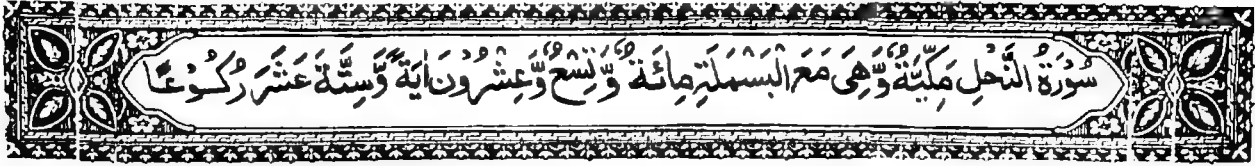 سُوْرَةُ النَّحْلِ مَكِّيَّةٌ وَّهِىَ مَعَ الْبَسْمَلَةِ مِائَةٌ وَّتِسْعٌ وَّعِشْرُوْنَ اٰيَةً وَّسِتَّةَ عَشَرَ رُكُوْعًا